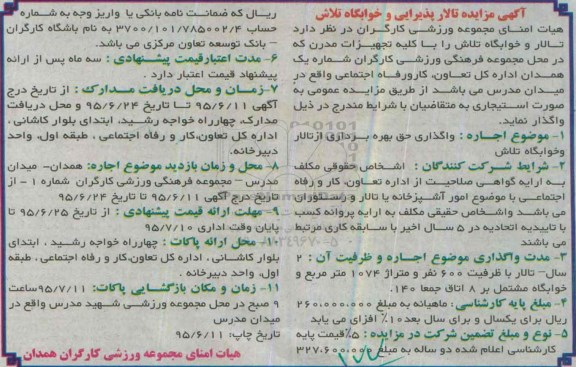 آگهی مزایده تالار پذیرایی و خوابگاه تلاش
هیات امنای مجموعه ورزشی کارگران در نظر دارد
تالار و خوابگاه تلاش را با کلیه تجهیزات مدرن که
در محل مجموعه فرهنگی ورزشی کارگران شماره یک
همدان اداره کل تعاون، کارورفاه اجتماعی واقع در
میدان مدرس می باشد از طریق مزایده عمومی به
صورت استیجاری به متقاضیان با شرایط مندرج در ذیل
واگذار نماید.
۱- موضوع اجاره : واگذاری حق بهره برداری ازتالار
وخوابگاه تلاش
۲- شرایط شرکت کنندگان : اشخاص حقوقی مکلف
به ارایه گواهی صلاحیت از اداره تعاون، کار و رفاه
اجتماعی با موضوع امور آشپزخانه یا تالار و رستوران
می باشد واشخاص حقیقی مکلف به ارایه پروانه کسب
با تاییدیه اتحادیه در ۵ سال اخیر با سابقه کاری مرتبط
می باشند
۳- مدت واگذاری موضوع اجاره و ظرفیت آن : ۲
سال- تالار با ظرفیت ۶۰۰ نفر و متراژ ۱۰۷۴ متر مربع و
خوابگاه مشتمل بر ۸ اتاق جمعا ۱۴۰.
۴- مبلغ پایه کارشناسی : ماهیانه به مبلغ ۲۶۰.۰۰۰.۰۰۰
ریال برای یکسال و برای سال بعد ۱۰٪ افزای می یابد
۵- نوع و مبلغ تضمین شرکت در مزایده : ۵٪قیمت پایه
کارشناسی اعلام شده دو ساله به مبلغ ۳۲۷.۶۰۰.۰۰۰
ریال که ضمانت نامه بانکی یا واریز وجه به شماره
حساب ۳۷۰۰/۱۰۱/۷۸۵۰۰۲/۴ به نام باشگاه کارگران
– بانک توسعه تعاون مرکزی می باشد.
۶- مدت اعتبارقیمت پیشنهادی : سه ماه پس از ارائه
پیشنهاد قیمت اعتبار دارد .
۷-زمان و محل دریافت مدارک : از تاریخ درج
آگهی ۹۵/۶/۱۱ تا تاریخ ۹۵/۶/۲۴ و محل دریافت
مدارک، چهارراه خواجه رشید، ابتدای بلوار کاشانی ،
اداره کل تعاون،کار و رفاه اجتماعی ، طبقه اول، واحد
دبیرخانه.
۸- محل و زمان بازدید موضوع اجاره: همدان- میدان
مدرس – مجموعه فرهنگی ورزشی کارگران شماره ۱ - از
تاریخ درج آگهی ۹۵/۶/۱۱ تا تاریخ ۹۵/۶/۲۴
۹- مهلت ارائه قیمت پیشنهادی : از تاریخ ۹۵/۶/۲۵ تا
پایان وقت اداری ۹۵/۷/۱۰
۱۰- محل ارائه پاکات : چهارراه خواجه رشید ، ابتدای
بلوار کاشانی ، اداره کل تعاون،کار و رفاه اجتماعی ، طبقه
اول، واحد دبیرخانه .
۱۱- زمان و مکان بازگشایی پاکات: ۹۵/۷/۱۱ساعت
۹ صبح در محل مجموعه ورزشی شهید مدرس واقع در
میدان مدرس
تاریخ چاپ: ۹۵/۶/۱۱
هیات امنای مجموعه ورزشی کارگران همدان